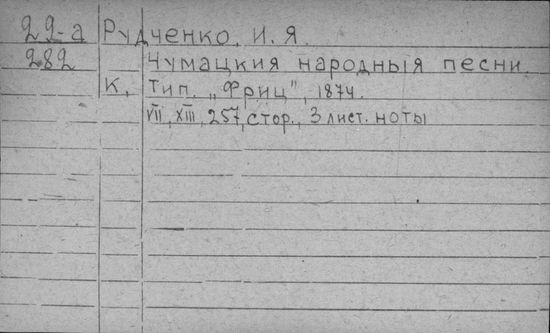 22-а Рудченко, И. Я.
282 Чумацкия народныя песни.
К, Тип. „Фриц", 1874.
VII, XIII, 257, стор., 3 лист. ноты